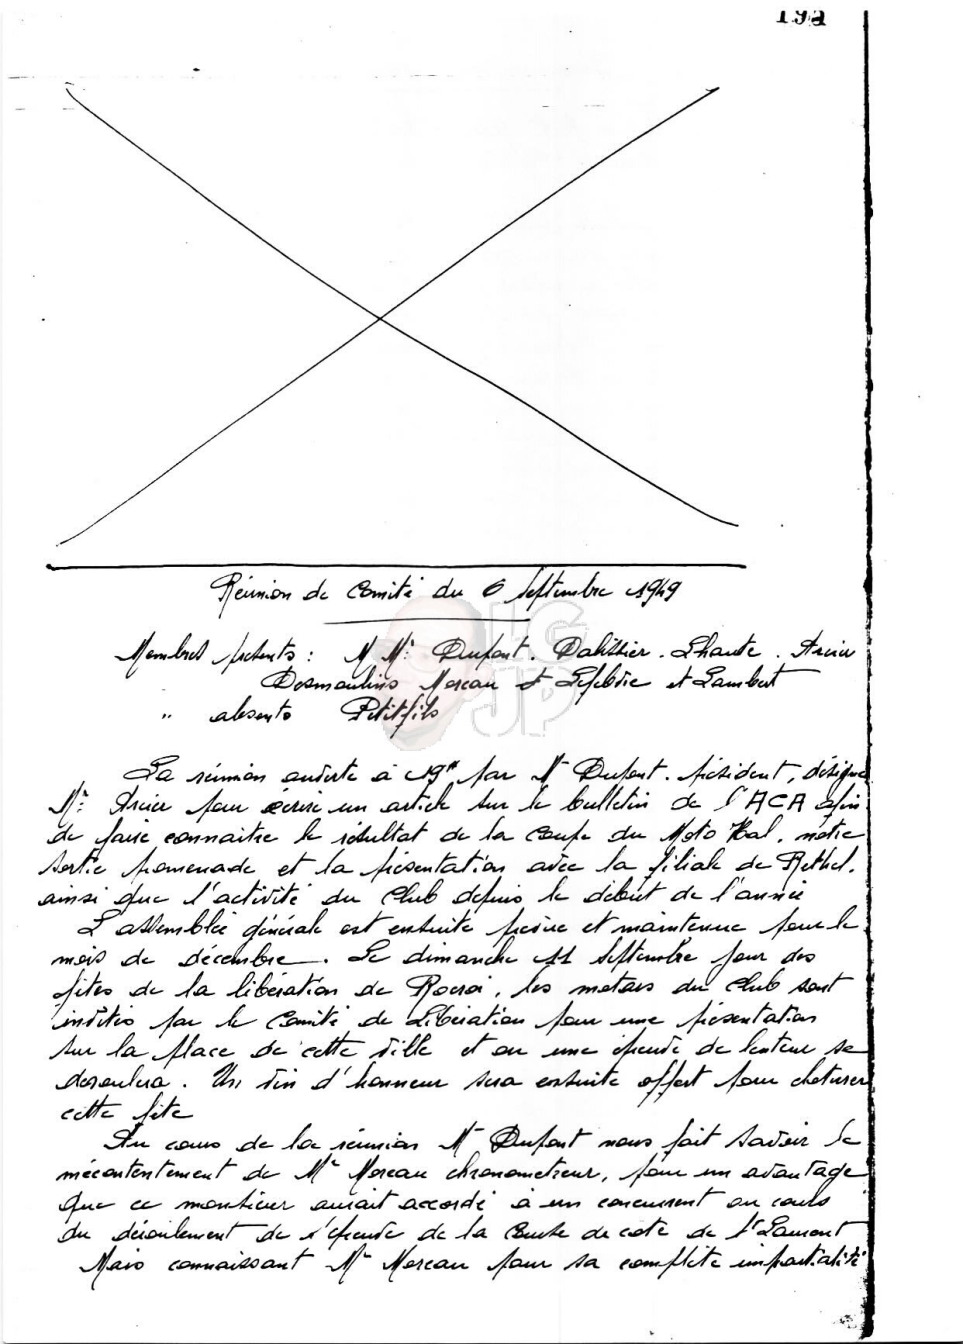 Réunion de Comité du 6 Septembre 1949
Membres présents : M Mrs Dupont. Dalissier. Lhaute. Arcier
Desmoulins Moreau et Lefebvre et Lambert
" absents Petitfils
La réunion ouverte à 19H par Mr Dupont. président, désigne
Mr Arcier pour écrire un article sur le bulletin de l'ACA afin
de faire connaitre le résultat de la Coupe du Moto Bal, notre
sortie promenade et la présentation avec la filiale de Rethel.
ainsi que l'activité du Club depuis le début de l'année
L'assemblée générale est ensuite prévue et maintenue pour le
mois de décembre. Le dimanche 11 Septembre pour des
fêtes de la libération de Rocroi, les motars du Club sont
invités par le Comité de Libération pour une présentation
sur la place de cette ville et ou une épreuve de lenteur se
deroulera. Un vin d'honneur sera ensuite offert pour cloturer
cette fête
Au cours de la réunion Mr Dupont nous fait savoir le
mécontentement de Mr Moreau chronometreur, pour un avantage
que ce monsieur aurait accordé à un concurrent au cours
du déroulement de l'épreuve de la Course de cote de St Laurent
Mais connaissant Mr Moreau pour sa complète impartialité